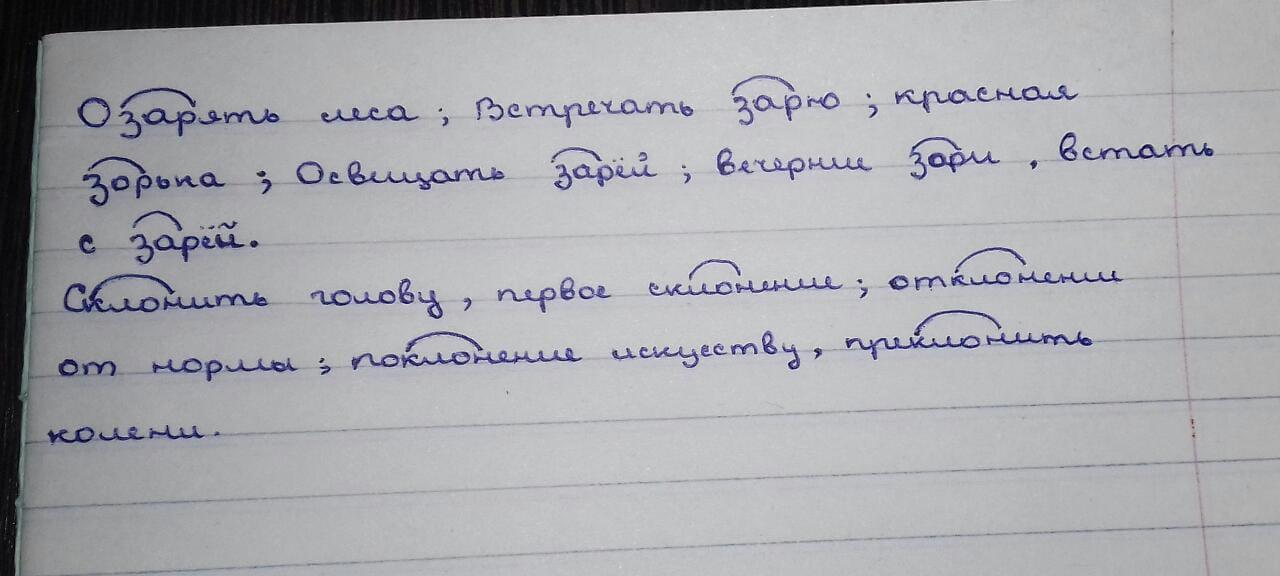 Озарять леса; Встречать зарю; красная
зорька; Освещать зарёй; вечерние зори, встать
с зарёй.
Склонить голову, первое склонение; отклонении
от нормы; поклонение искуеству, приклонить
колени.